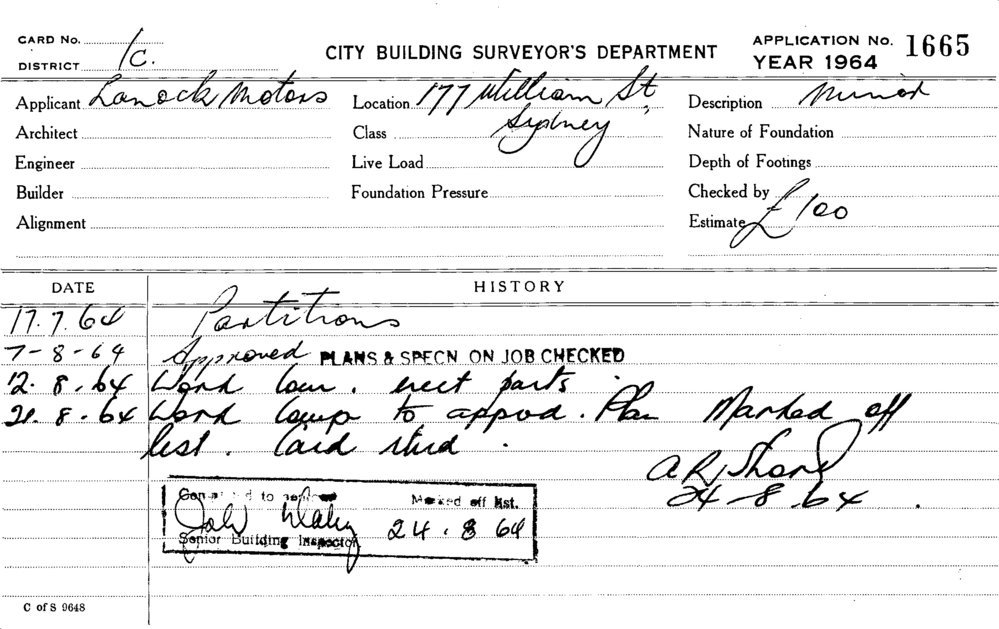 CARD No. 1c.
DISTRICT
CITY BUILDING SURVEYOR'S DEPARTMENT
APPLICATION No. 1665
YEAR 1964
Applicant Lanock Motors
Location 177 William St,
Sydney
Description Minor
Architect
Class
Nature of Foundation
Engineer
Live Load
Depth of Footings
Builder
Foundation Pressure
Checked by
Alignment
Estimate £100
DATE HISTORY
17.7.64 Partitions
7-8-64 Approved PLANS & SPECN ON JOB CHECKED
12.8.64 Work Com. erect parts.
21.8.64 Work Comp to appvd. Plan Marked off
list. Card
24-8.64.
to Marked off list.
24.8 64
Senior Building Inspector
C of S 9648